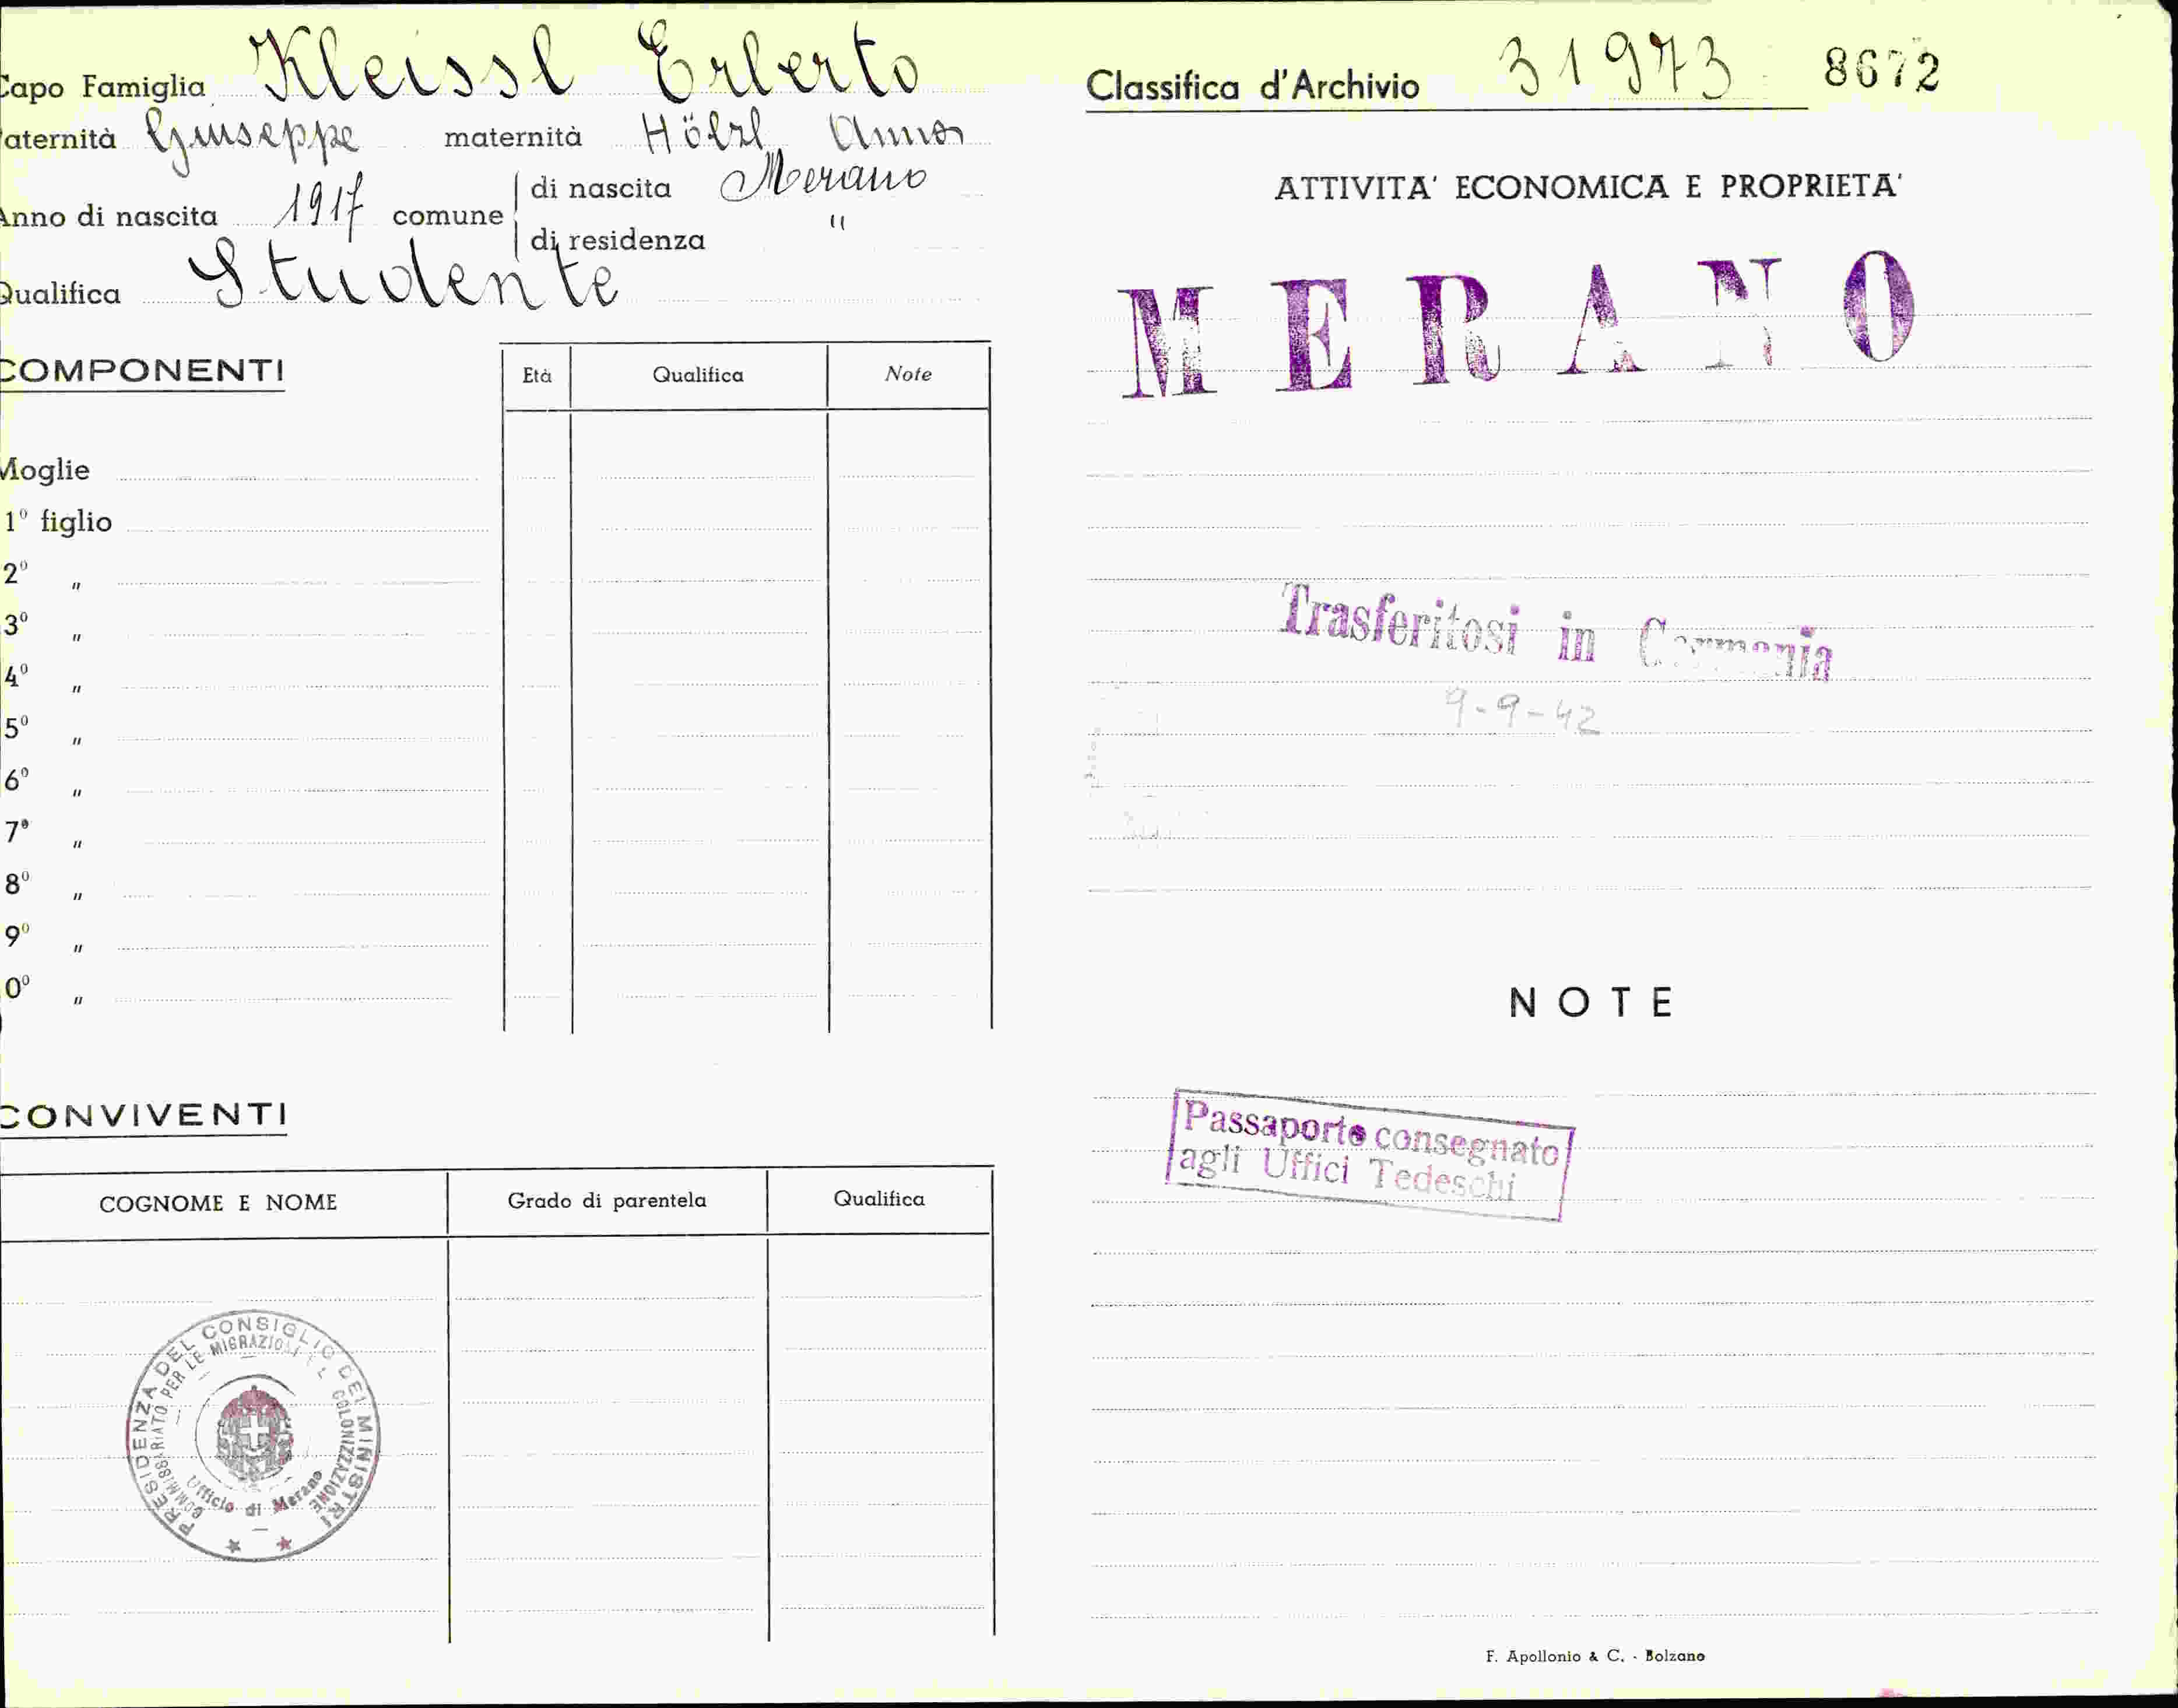 Capo Famiglia Kleissl Erberto
aternità Giuseppe maternità Hölzl Anna
Anno di nascita 1917 comune di nascita Merano
di residenza "
Qualifica Studente
COMPONENTI
Età Qualifica Note
Moglie
1º figlio
2º "
3º "
4º "
5º "
6º "
7º "
8º "
9º "
0º "
CONVIVENTI
COGNOME E NOME Grado di parentela Qualifica
PRESIDENZA DEL CONSIGLIO DEI MINISTRI
COMMISSARIATO PER LE MIGRAZIONI E L COLONIZZAZIONE
Ufficio di Merano
Classifica d'Archivio 31973 8672
ATTIVITA' ECONOMICA E PROPRIETA'
MERANO
Trasferitosi in Germania
9-9-42
NOTE
Passaporto consegnato
agli Uffici Tedeschi
F. Apollonio & C. - Bolzano